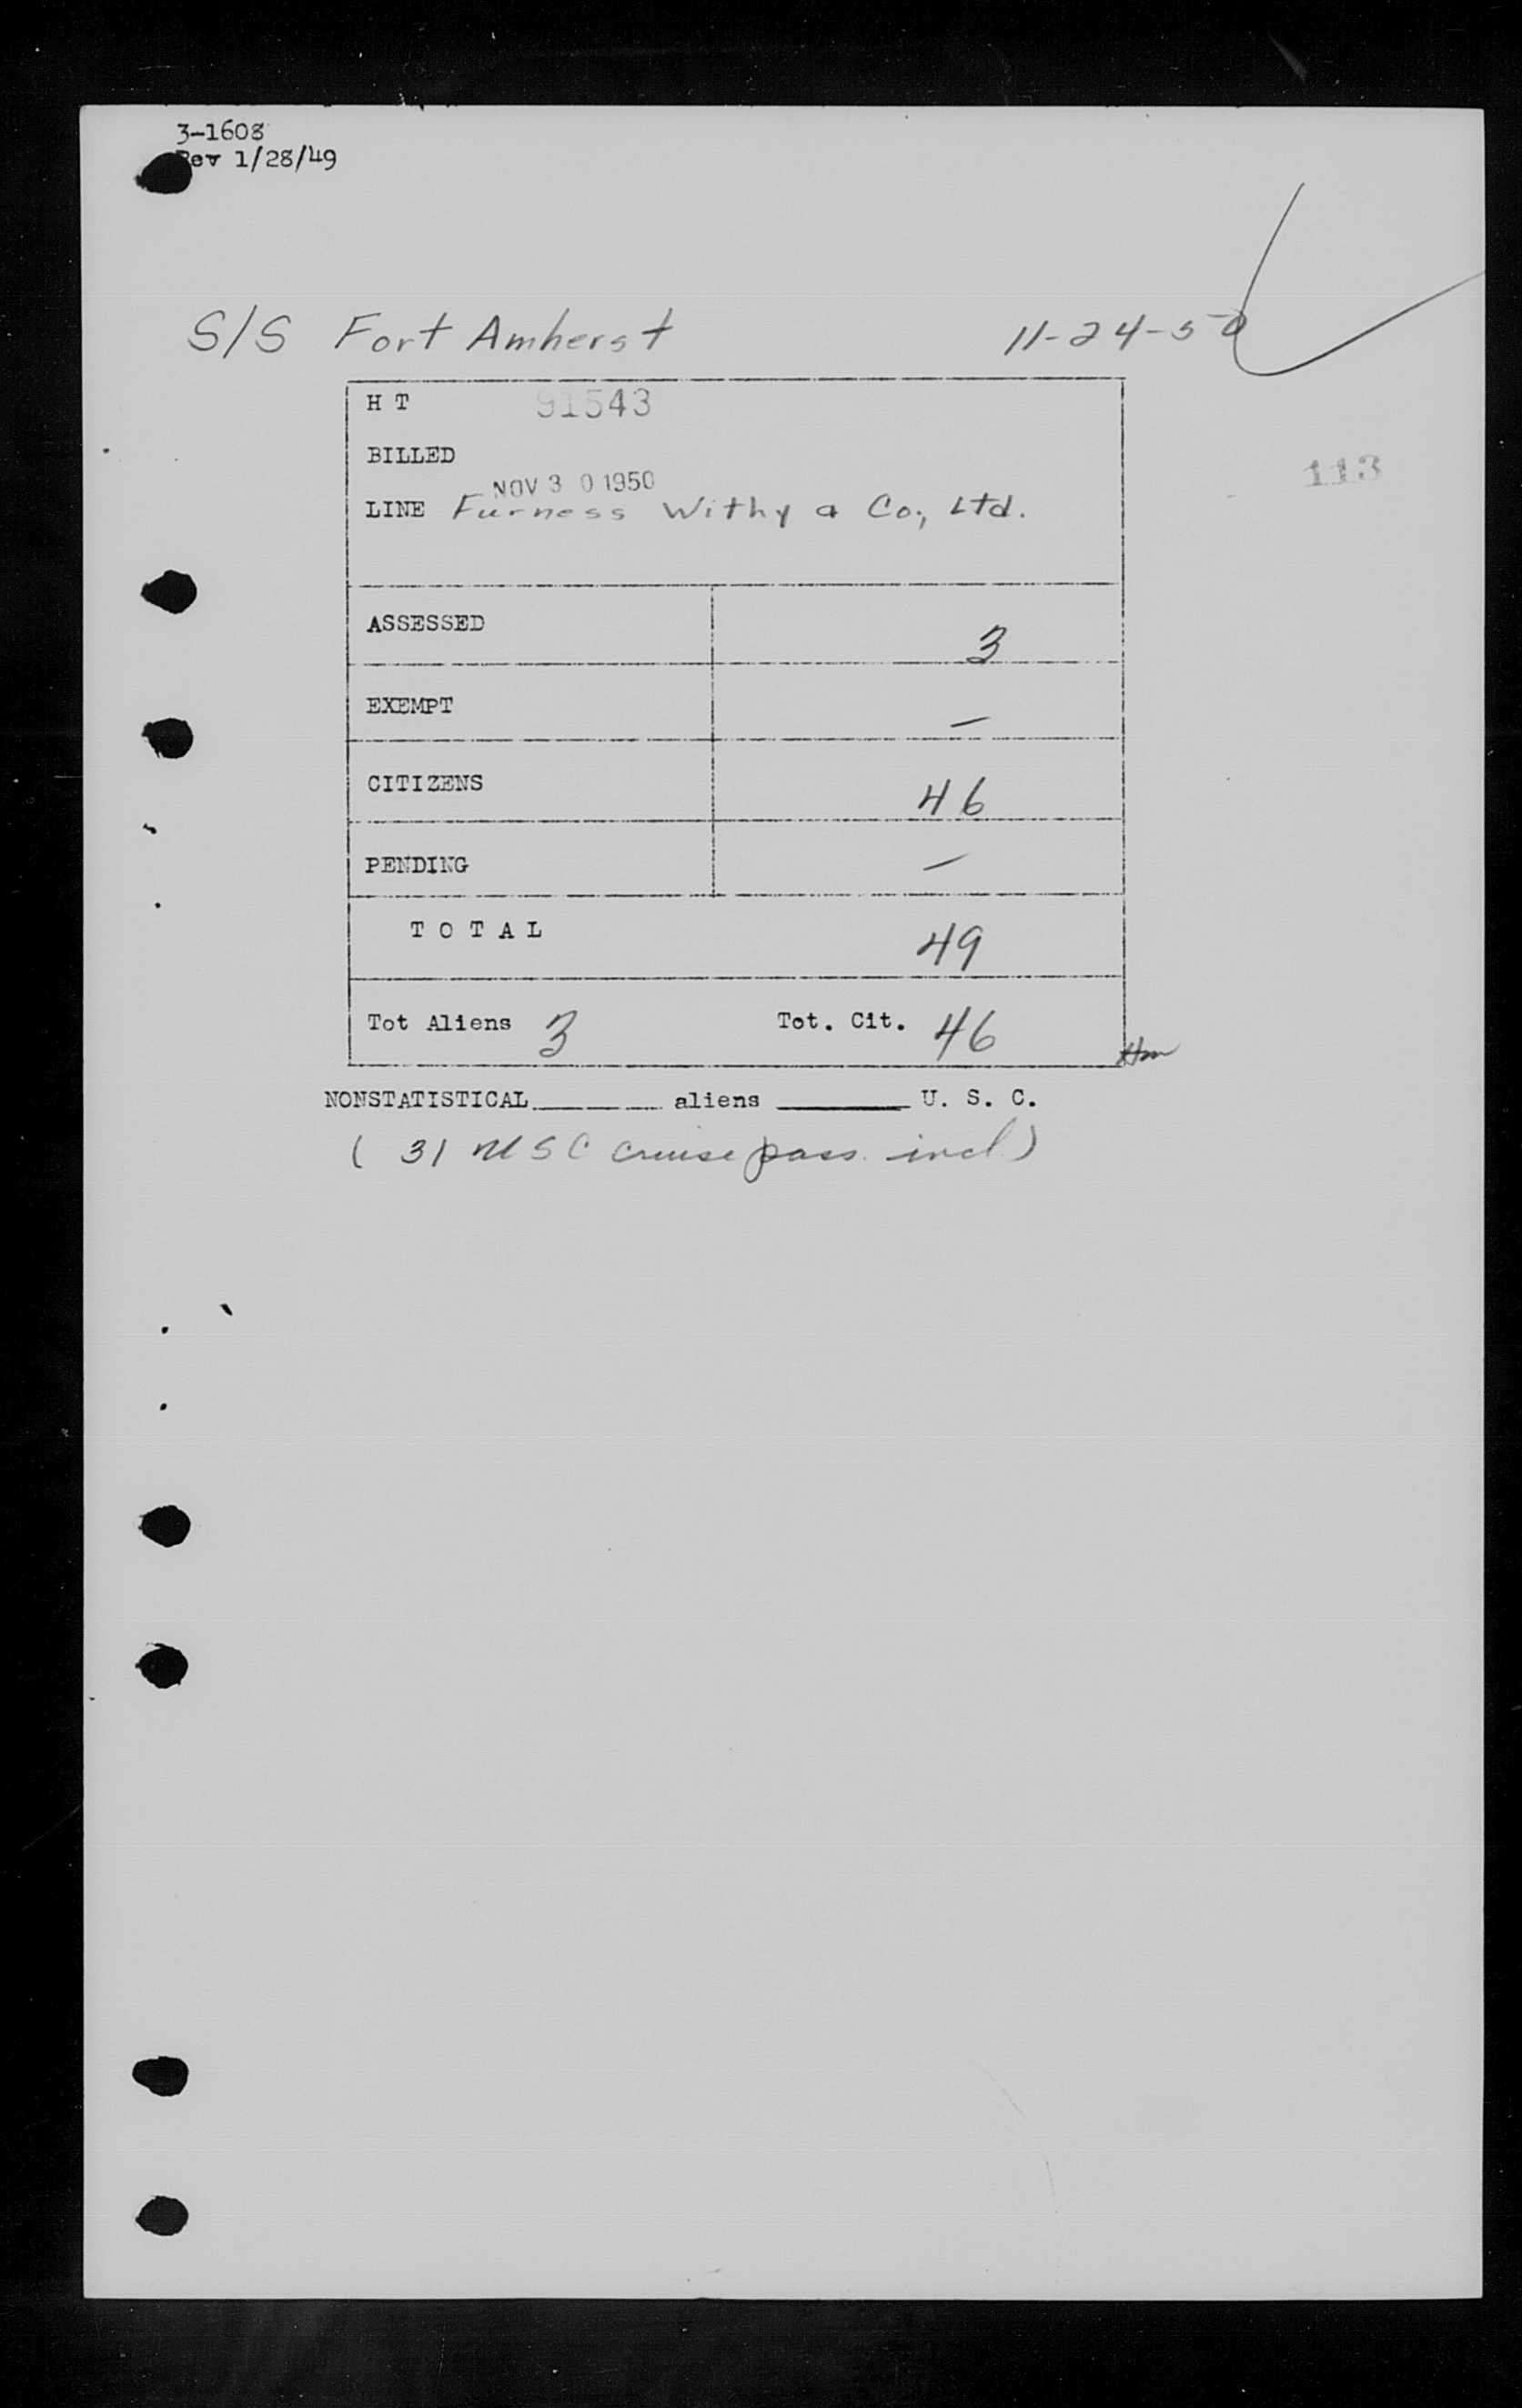 3-1608
Rev 1/28/49
S/S Fort Amherst 11-24-50
H T 91543
113
BILLED
NOV 30 1950
LINE Furness Withy & Co., Ltd.
ASSESSED 3
EXEMPT —
CITIZENS 46
PENDING —
T O T A L 49
Tot Aliens 3 Tot. Cit. 46
NONSTATISTICAL______ aliens ______ U. S. C.
( 31 USC cruise pass. incl.)